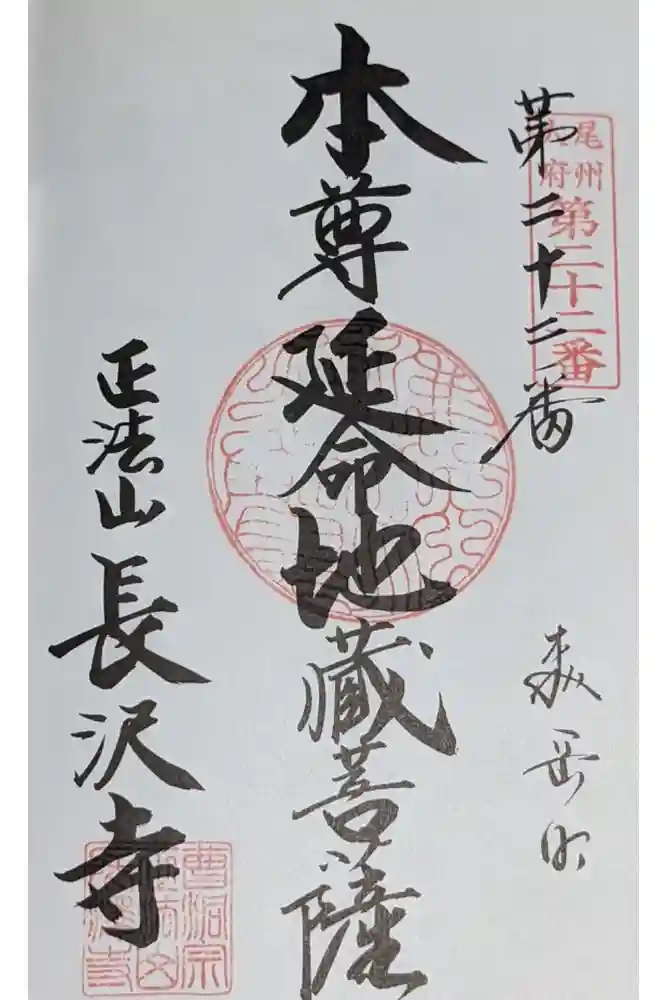 第二十二番
尾州
府第二十二番
本尊延命地蔵菩薩
正法山長沢寺
曹洞宗